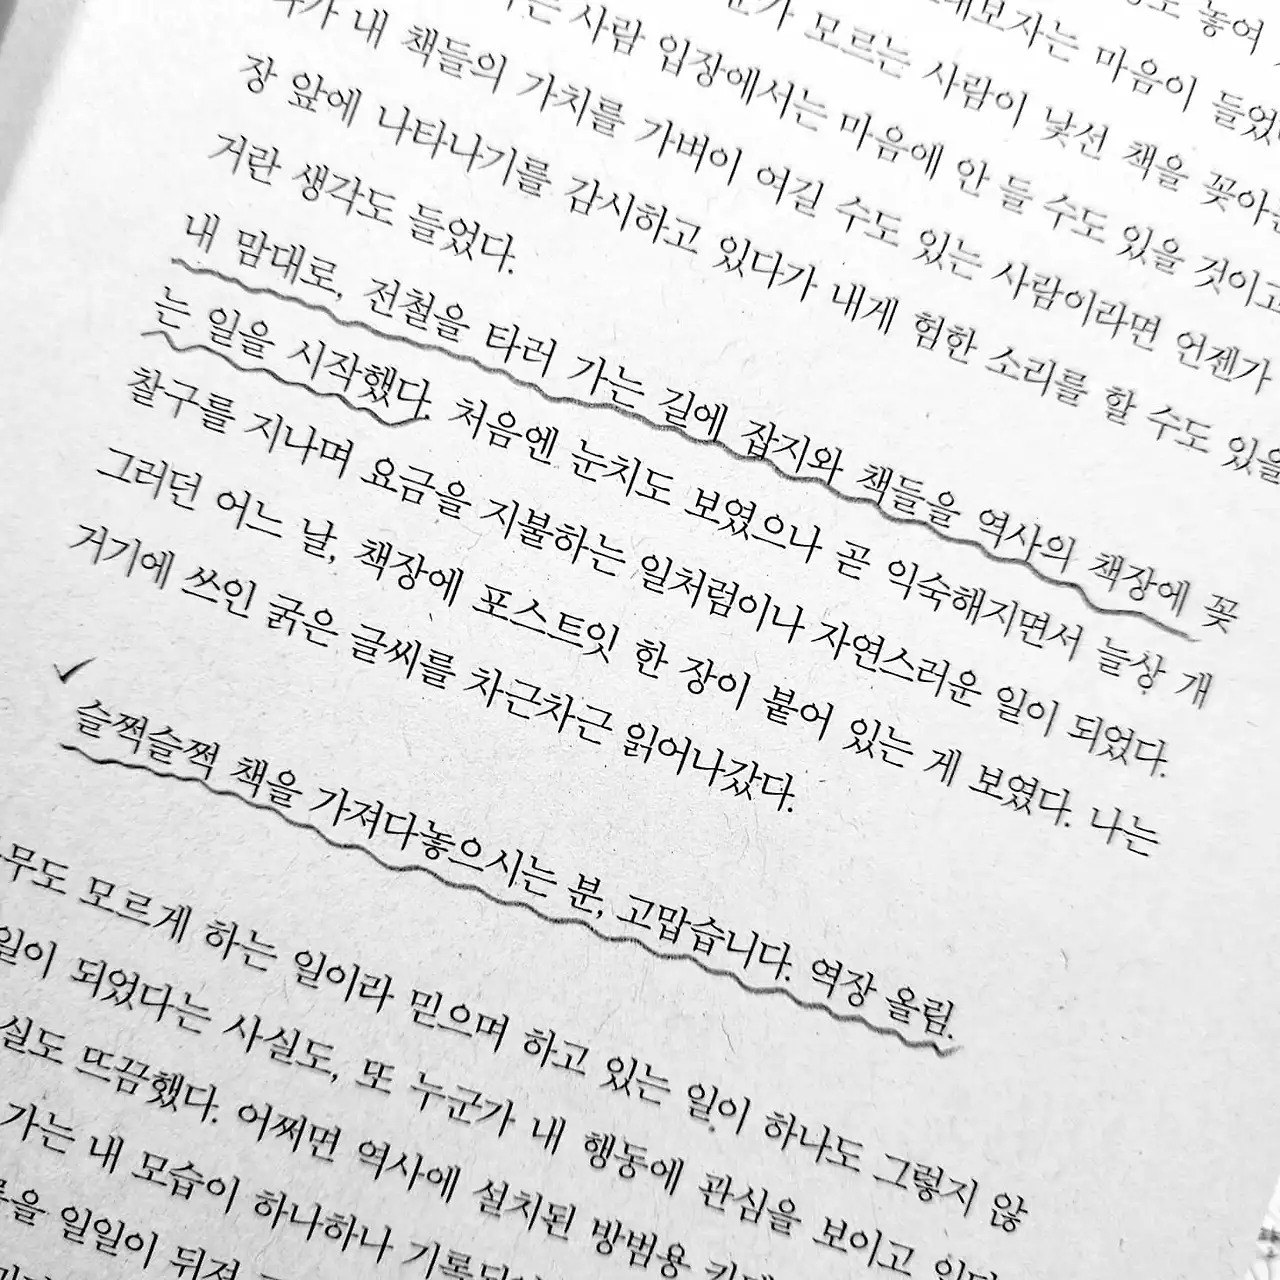 놓여
대보자는 마음이 들었
모르는 사람이 낯선 책을 꽂아
사람 입장에서는 마음에 안 들 수도 있을 것이고
가 내 책들의 가치를 가벼이 여길 수도 있는 사람이라면 언젠가
장 앞에 나타나기를 감시하고 있다가 내게 험한 소리를 할 수도 있을
거란 생각도 들었다.
내 맘대로, 전철을 타러 가는 길에 잡지와 책들을 역사의 책장에 꽂
는 일을 시작했다. 처음엔 눈치도 보였으나 곧 익숙해지면서 늘상 개
찰구를 지나며 요금을 지불하는 일처럼이나 자연스러운 일이 되었다.
그러던 어느 날, 책장에 포스트잇 한 장이 붙어 있는 게 보였다. 나는
거기에 쓰인 굵은 글씨를 차근차근 읽어나갔다.
슬쩍슬쩍 책을 가져다놓으시는 분, 고맙습니다. 역장 올림.
무도 모르게 하는 일이라 믿으며 하고 있는 일이 하나도 그렇지 않
일이 되었다는 사실도, 또 누군가 내 행동에 관심을 보이고
실도 뜨끔했다. 어쩌면 역사에 설치된 방범용
가는 내 모습이 하나하나
을 일일이 뒤져